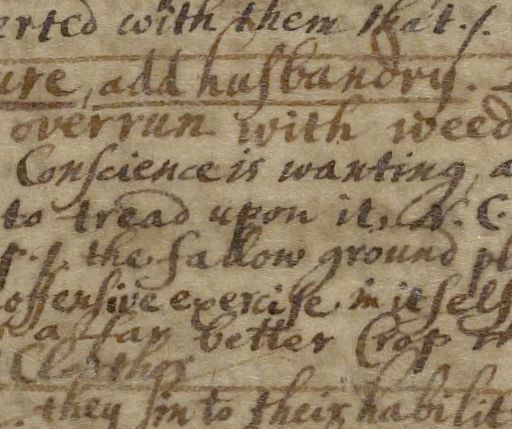 erted with them that. s.
ure, add husbandry.
overrun with weed
Conscience is wanting, a
to tread upon it, N. C.
p. s. the fallow ground pl
offensive exercise in itself
a far better Crop
they sin to their habilit